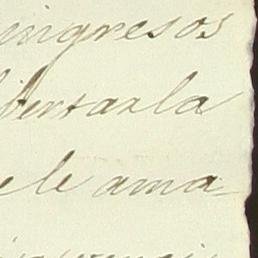 ingresos
libertarla
ele ama-